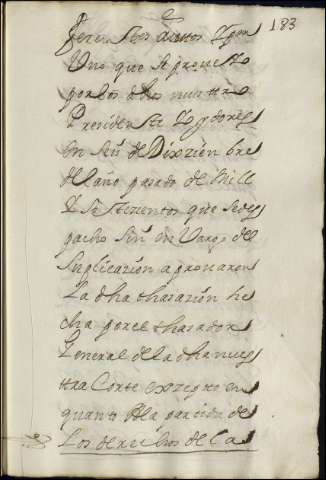 183
ferentes autos Y por
Uno que se proveyo
por los dhos nuestro
Presidente Y oydores
en seis de Dixziembre
del año pasado de mill
Y seiscientos que se des
pacho sin en Vargo de
suplicazion aprovaron
La dha thasazion he
cha por el thasador
General de la dha nues
tra Corte exzepto en
quanto a la partida de
Los derechos de la